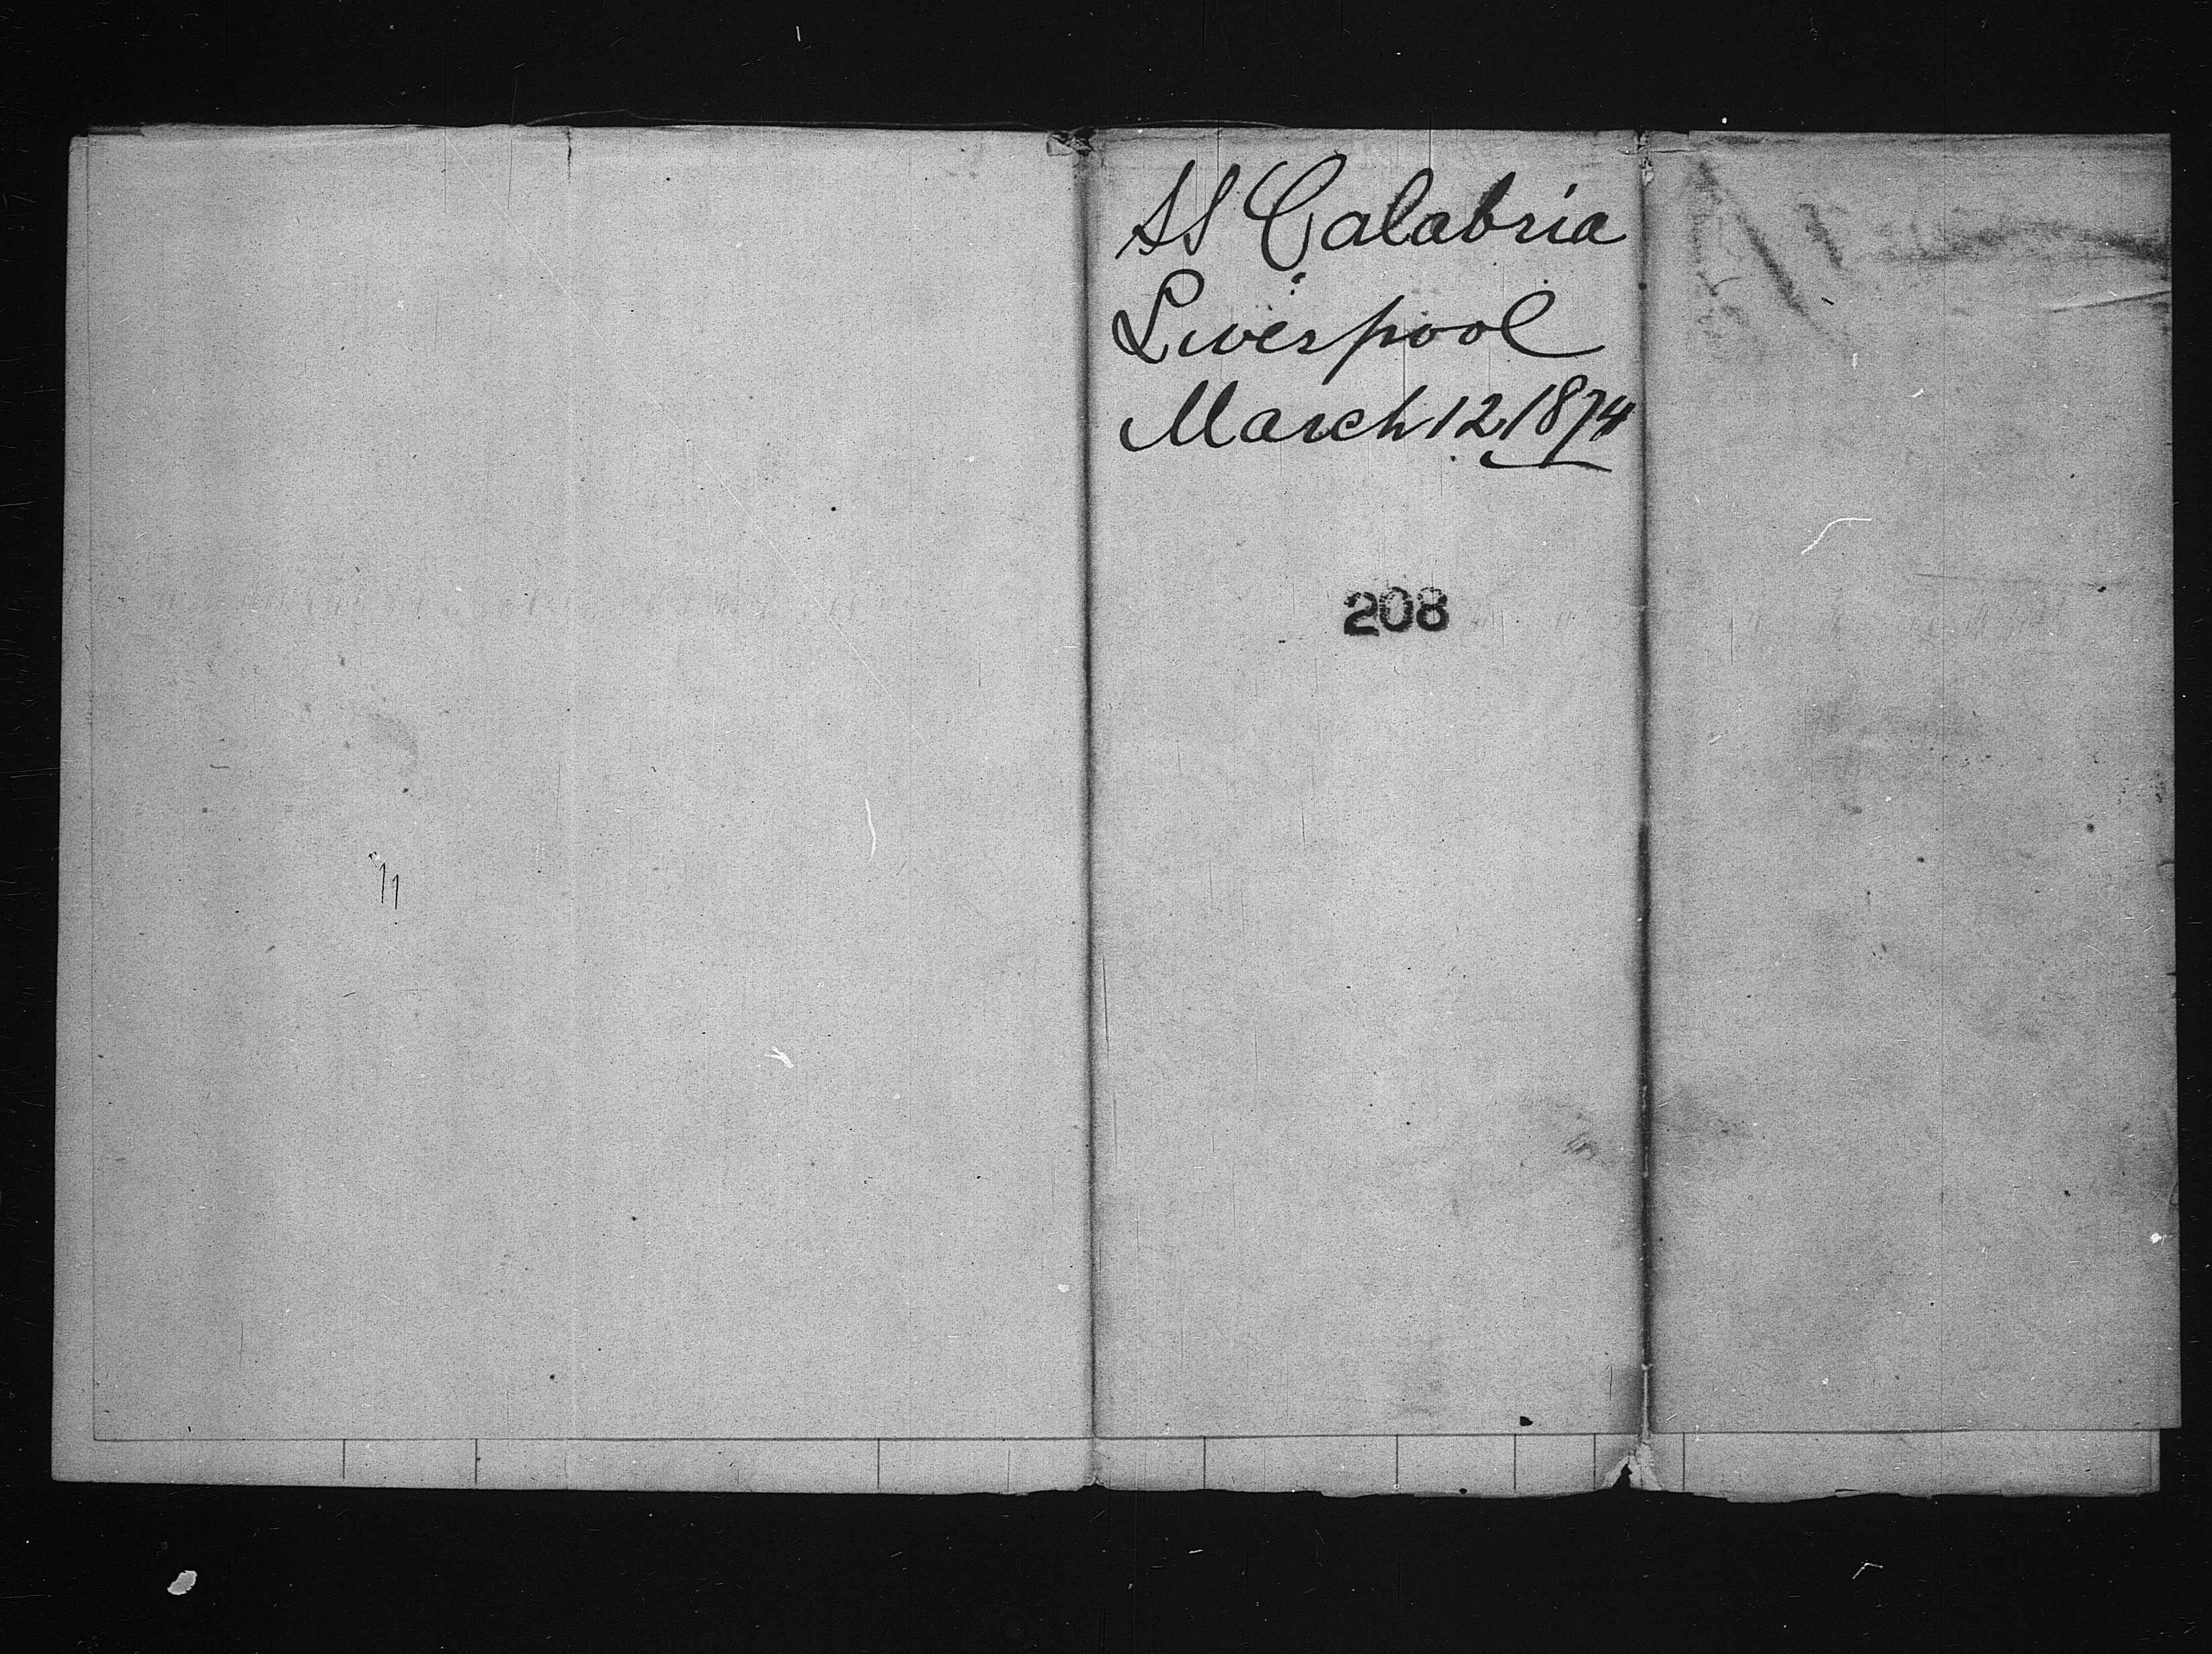 SS Calabria
Liverpool
March 12 1874
208